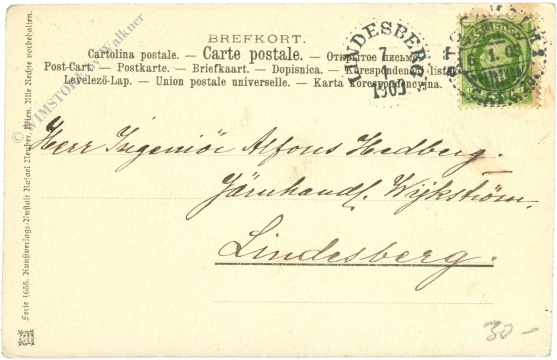 BREFKORT.
Cartolina postale. — Carte postale. — Открытое письмо.
Post-Cart. — Postkarte. — Briefkaart. — Dopisnica. — Korespondenční listek.
Levelező-Lap. — Union postale universelle. — Karta korespondencyjna.
LINDESBERG
7
1
1903
6 1. 03
Herr Ingeniör Alfons Hedberg.
Järnhandl. Wijkström.
Lindesberg.
30-
Serie 1655. Kunstverlags-Anstalt Rafael Neuber, Wien. Alle Rechte vorbehalten.
© WIMSTORE by Walkner